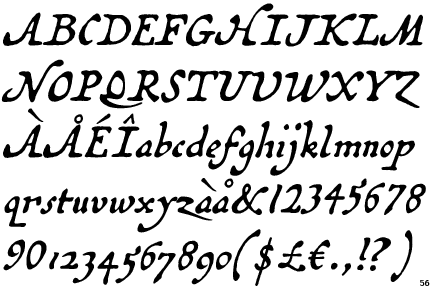 ABCDEFGHIJKLM
NOPQRSTUVWXYZ
ÀÅÉÎabcdefghijklmnop
qrstuvwxyzàå&12345678
901234567890($£€.,!?)
56